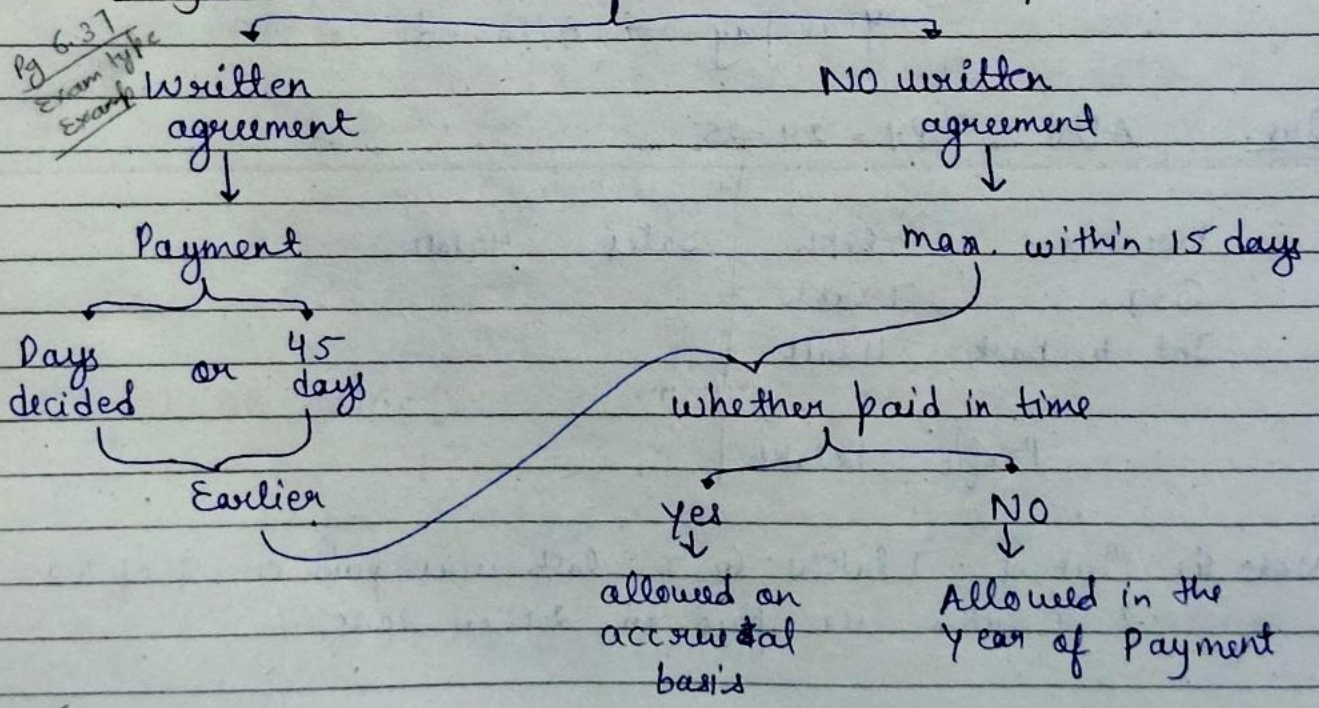 Pg 6.37
Exam type
Examp
Written
agreement
NO written
agreement
Payment
max. within 15 days
Days
decided
or
45
days
whether paid in time
Earlier
Yes
NO
allowed on
accrual
basis
Allowed in the
Year of Payment